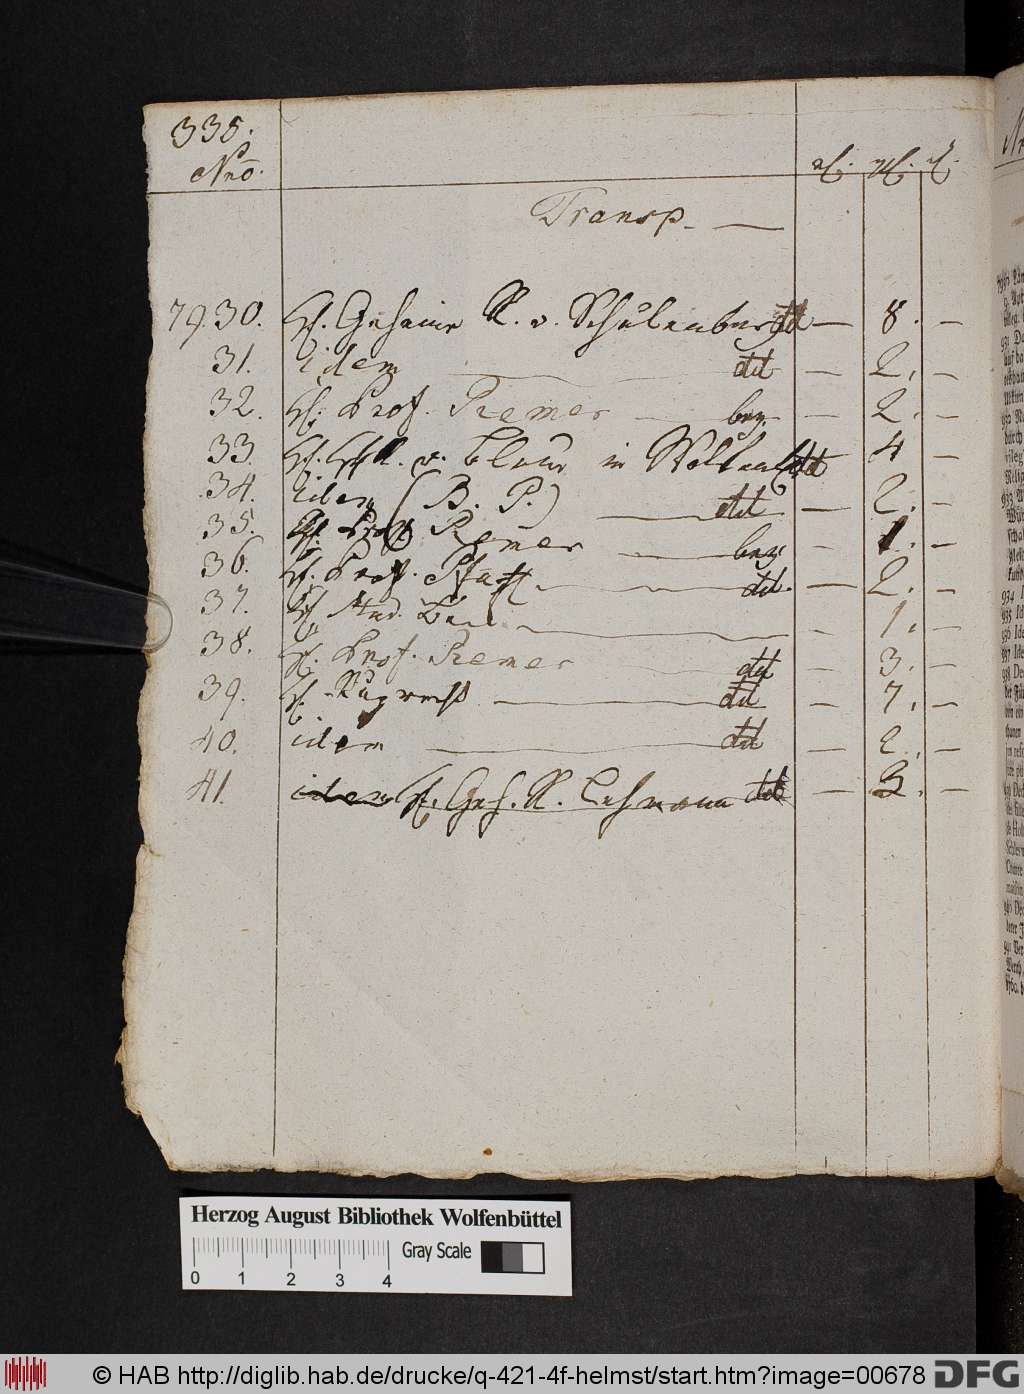 335.
Nro.
Transp.
7930. H. Geheime R. v. Schulenberg dt — 8. —
31. idem dt — 2. —
32. H. Prof. Remer bez. — 2. —
33. H. v. in Wolfenb. dt — 4 —
34. idem (B. P.) dt — 2. —
35. H. Prof. Remer bez — 1. —
36. H. Prof. Pfaff dt. — 2. —
37. H. Stud. — 1. —
38. H. Prof. Remer dt — 3. —
39. H. Ruprecht dt — 7. —
40. idem dt — 2. —
41. idem H. Geh. R. Lehmann dt — 3. —
Herzog August Bibliothek Wolfenbüttel
Gray Scale
0 1 2 3 4
© HAB http://diglib.hab.de/drucke/q-421-4f-helmst/start.htm?image=00678 DFG